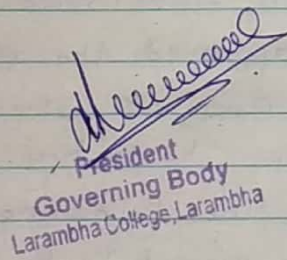 President
Governing Body
Larambha College, Larambha